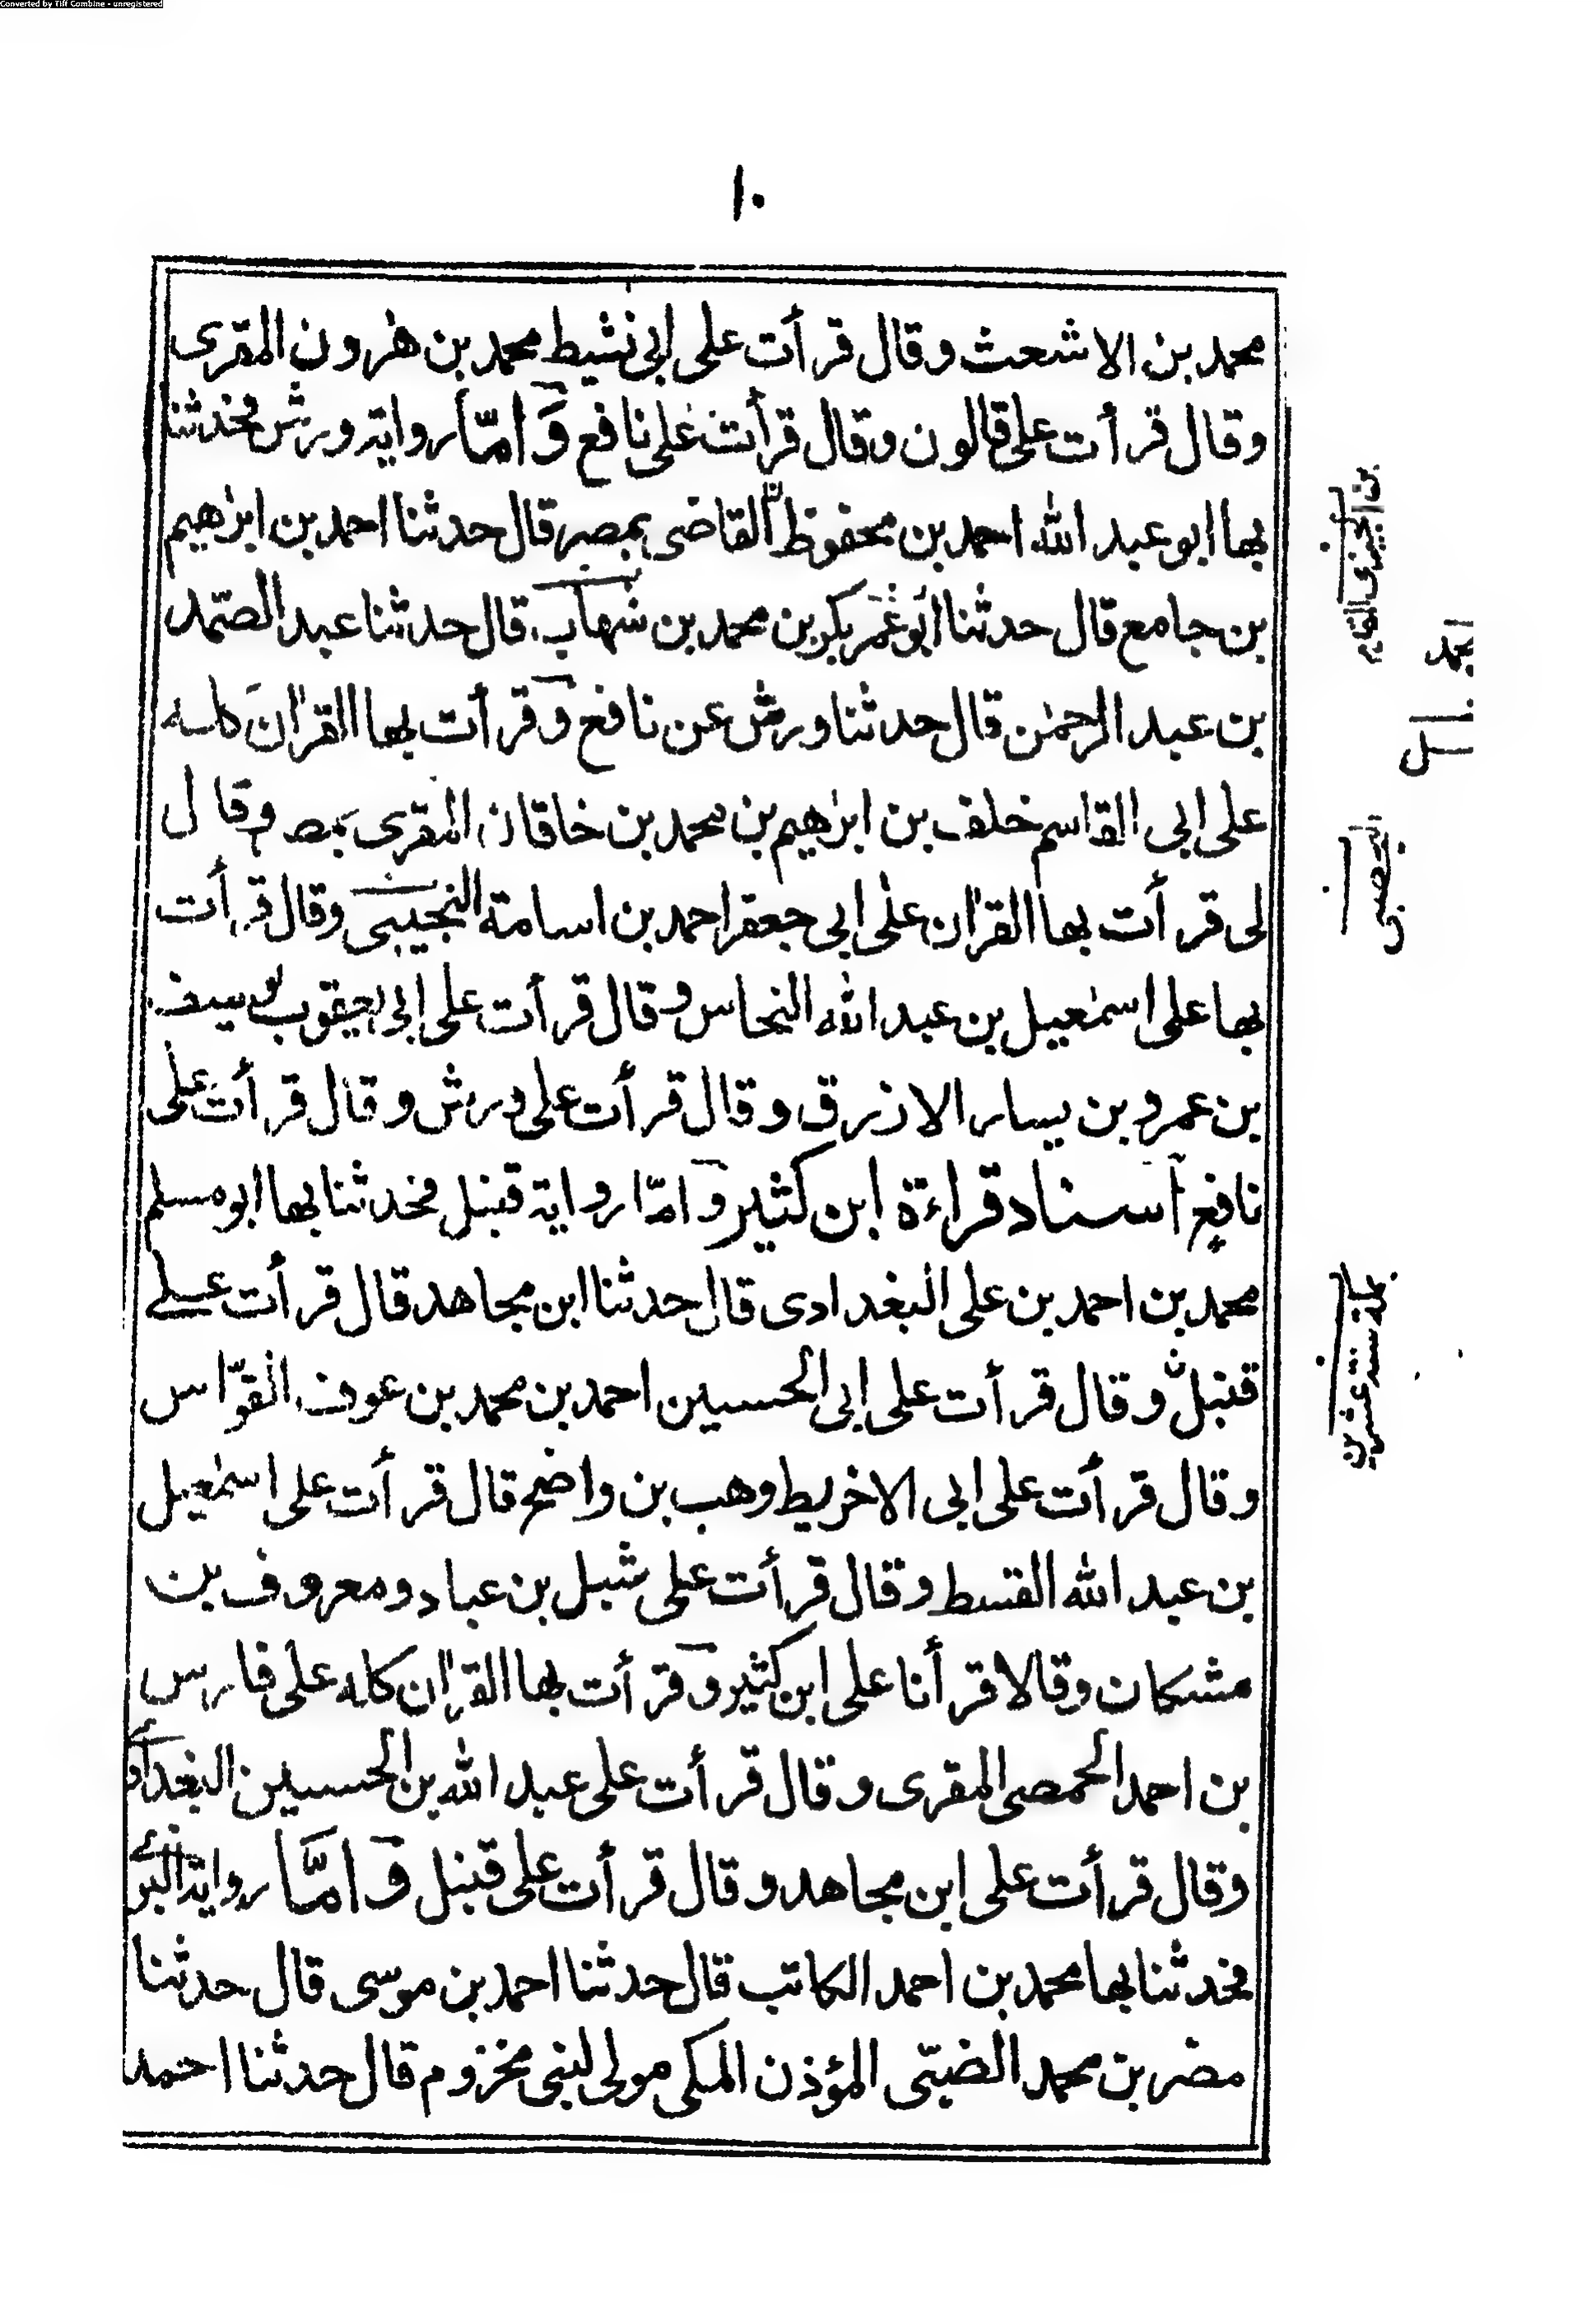 Converted by Tiff Combine - unregistered
١٠
محمد بن الاشعث وقال قرأت على ابى نشيط محمد بن هٰرون المقرى
وقال قرأت على قالون وقال قرأت على نافع وَامّا رواية ورش فحدثنا
بها ابو عبد الله احمد بن محفوظ القاضى بمصر قال حدثنا احمد بن ابرٰهيم
بن جامع قال حدثنا ابو عمر بكر بن محمد بن شهاب قال حدثنا عبد الصمّد
بن عبد الرحمٰن قال حدثنا ورش عن نافع وقرأت بها القراٰن كله
على ابى القاسم خلف بن ابرٰهيم بن محمد بن خاقان المقرى بمصر وقال
لى قرأت بها القراٰن على ابى جعفر احمد بن اسامة التجيبى وقال قرأت
بها على اسمٰعيل بن عبد الله النحاس وقال قرأت على ابى يعقوب يوسف
بن عمرو بن يسار الازرق وقال قرأت على ورش وقال قرأت على
نافع اسناد قراءة ابن كثير وامّا رواية قنبل فحدثنا بها ابو مسلم
محمد بن احمد بن على البغدادى قال حدثنا ابن مجاهد قال قرأت على
قنبل وقال قرأت على ابى الحسين احمد بن محمد بن عون القوّاس
وقال قرأت على ابى الاخريط وهب بن واضح قال قرأت على اسمٰعيل
بن عبد الله القسط وقال قرأت على شبل بن عباد ومعروف بن
مشكان وقالا قرأنا على ابن كثير وقرأت بها القراٰن كله على فارس
بن احمد الحمصى المقرى وقال قرأت على عبد الله بن الحسين البغدادى
وقال قرأت على ابن مجاهد وقال قرأت على قنبل وامَّا رواية البزى
فحدثنا بها محمد بن احمد الكاتب قال حدثنا احمد بن موسى قال حدثنا
مضر بن محمد الضبّى المؤذن المكى مولى لبنى مخزوم قال حدثنا احمد